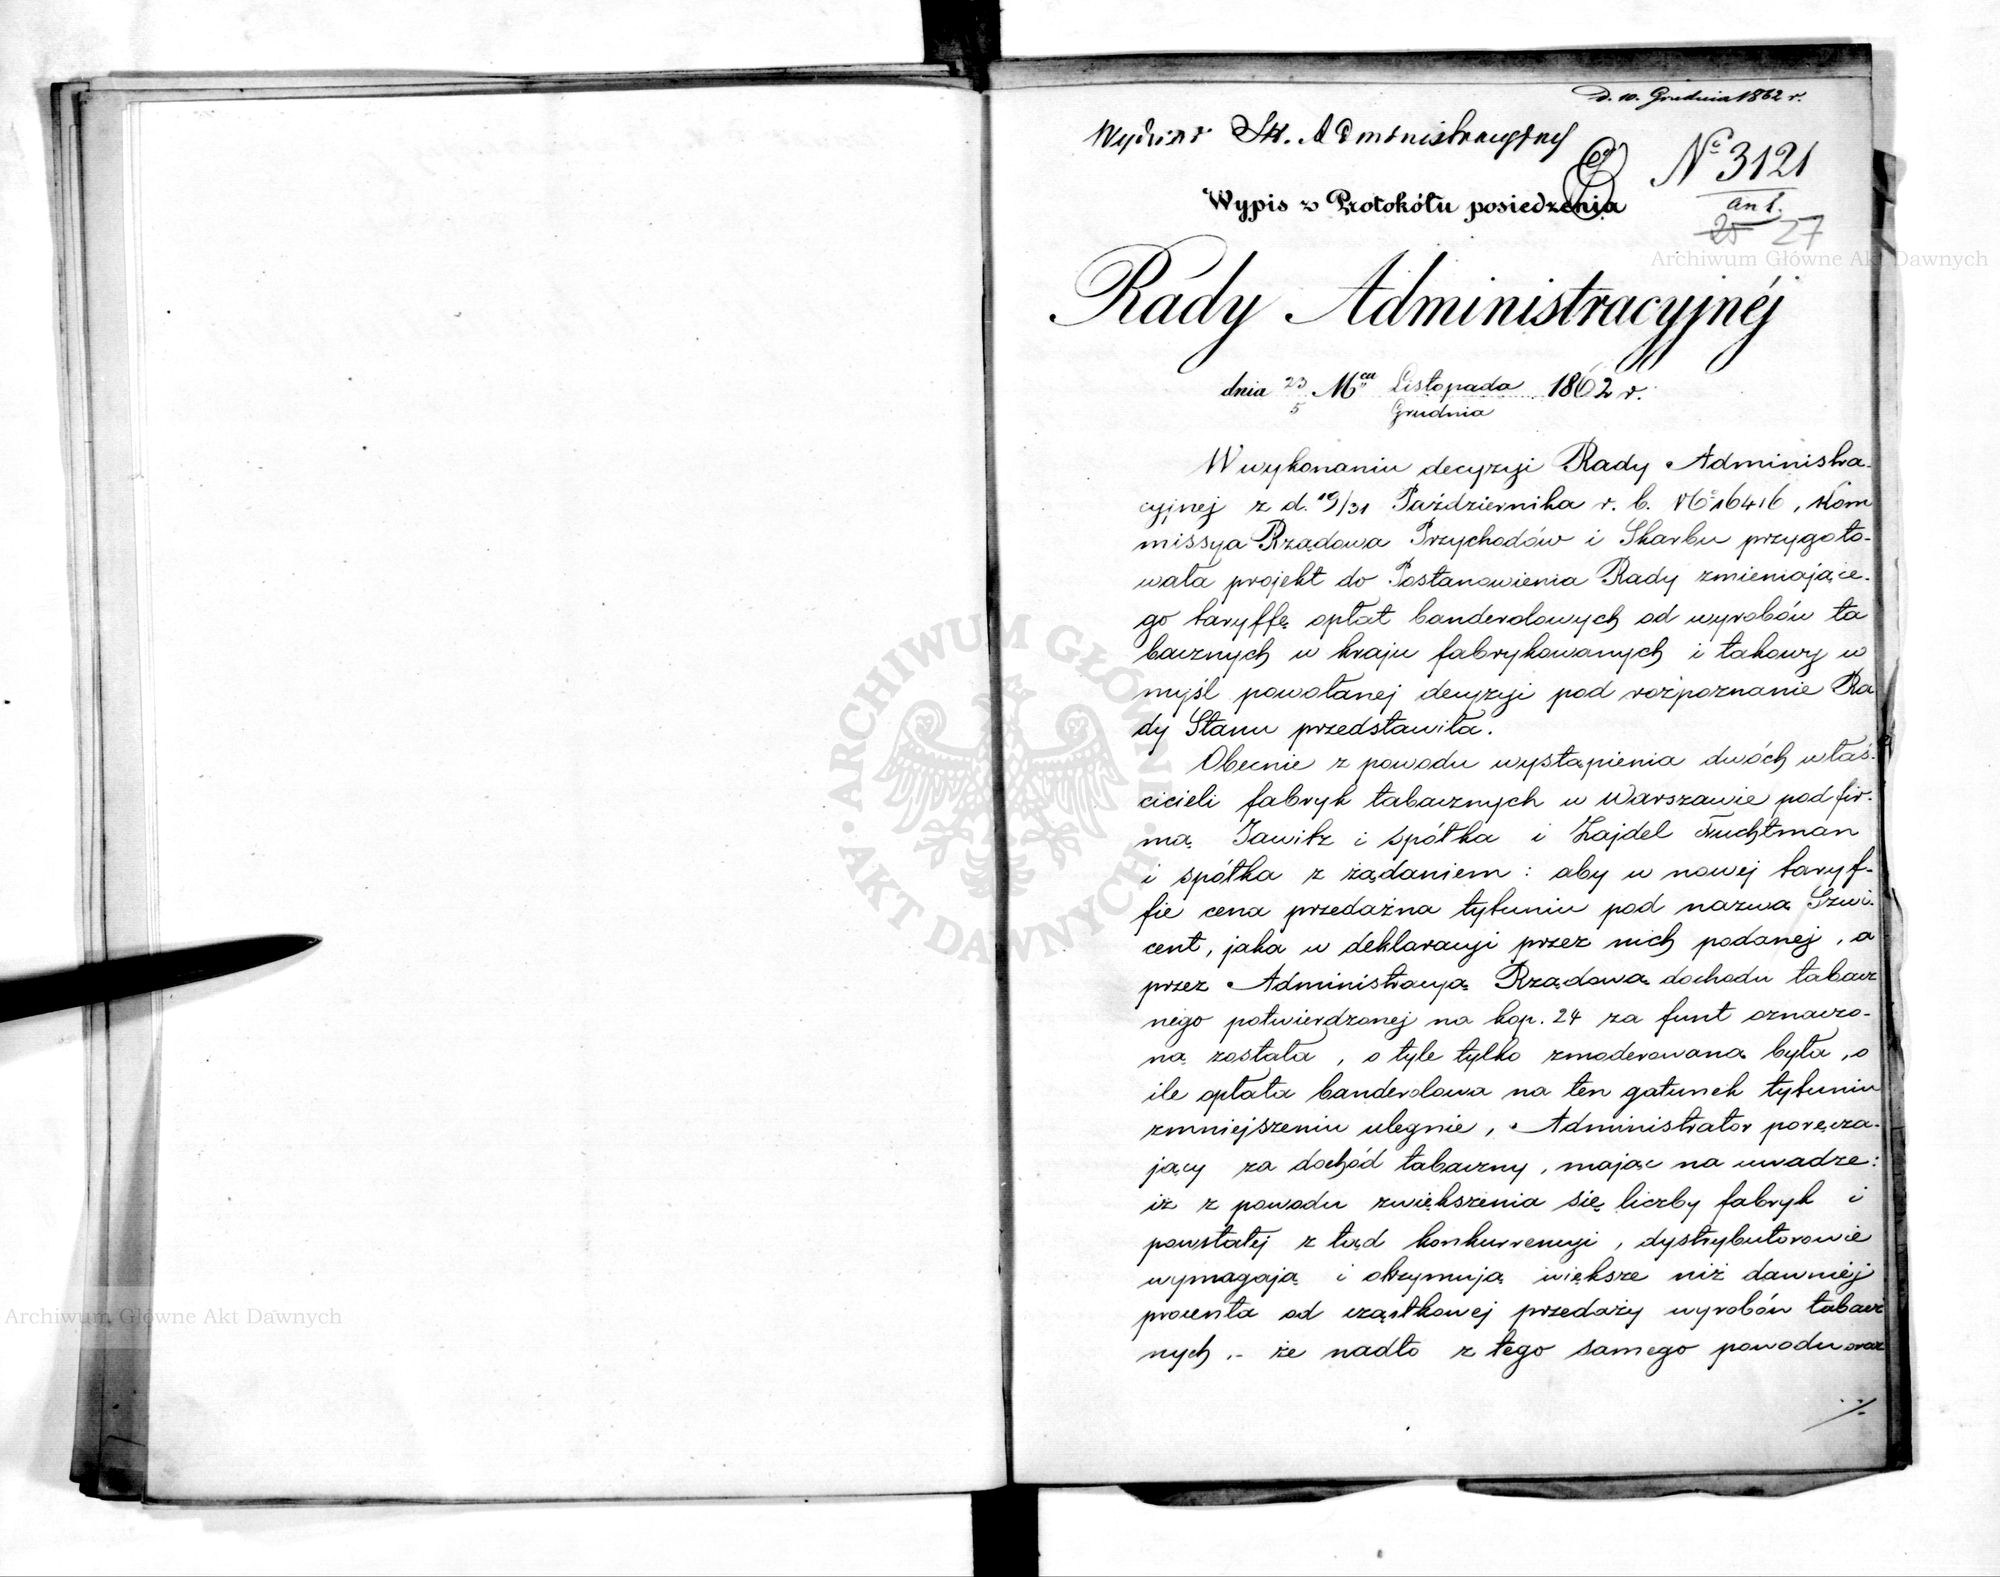 D. 10. Grudnia 1862 r.
Wydział Sk. Administracyjny
No 3121
ant.
Wypis z Protokółu posiedzenia
25 27
Archiwum Główne Akt Dawnych
Rady Administracyjnéj
dnia 23/5 Mca Listopada/Grudnia 1862 r.
W wykonaniu decyzyi Rady Administra-
cyjnej z d. 19/31 Października r. b. No 16416, Kom
missya Rządowa Przychodów i Skarbu przygoto-
wała projekt do Postanowienia Rady zmieniające-
go taryffę opłat banderolowych od wyrobów ta
bacznych w kraju fabrykowanych i takowy w
myśl powołanej decyzyi pod rozpoznanie Ra
dy Stanu przedstawiła.
Obecnie z powodu wystąpienia dwóch właś-
cicieli fabryk tabacznych w Warszawie pod fir-
mą Jawitz i spółka i Zajdel Fruchtman
i spółka z żądaniem: aby w nowej taryf-
fie cena przedażna tytuniu pod nazwą Szwi-
cent, jaka w deklaracyi przez nich podanej, a
przez Administracyą Rządową dochodu tabacz
nego potwierdzonej na kop. 24 za funt oznaczo-
ną została, o tyle tylko zmoderowaną była, o
ile opłata banderolowa na ten gatunek tytuniu
zmniejszeniu ulegnie, Administrator poręcza-
jący za dochód tabaczny, mając na uwadze:
iż z powodu zwiększenia się liczby fabryk i
powstałej z tąd konkurrencyi, dystrybutorowie
wymagają i otrzymują większe niż dawniej
procenta od cząstkowej przedaży wyrobów tabacz
nych,- że nadto z tego samego powodu oraz
./.
ARCHIWUM GŁÓWNE AKT DAWNYCH
Archiwum Główne Akt Dawnych